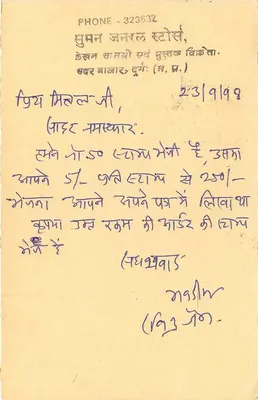 PHONE - 323632
सुमन जनरल स्टोर्स,
लेखन सामग्री एवं पुस्तक विक्रेता.
सदर बाजार, दुर्ग: (म. प्र.)
23/9/98
प्रिय मित्तल जी,
सादर नमस्कार.
हमने जो 50 स्टाम्प भेजी है, उसका
आपने 5/- प्रति स्टाम्प से 250/-
भेजना आपने अपने पत्र में लिखा था
कृपया उक्त रकम की आर्डर की स्टाम्प
भेजें
धन्यवाद